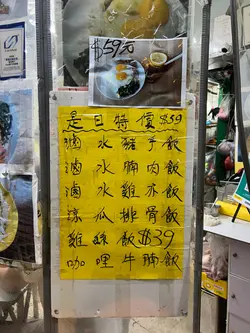 $59元
是日特價$59
滷水豬手飯
滷水腩肉飯
滷水雞亦飯
涼瓜排骨飯
雞絲飯$39
咖哩牛腩飯